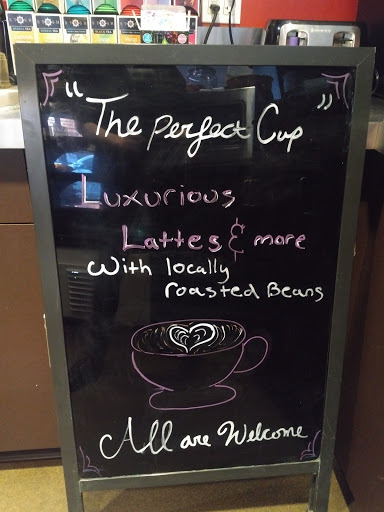 "The Perfect Cup"
Luxurious
Lattes & more
With locally
roasted Beans
All are Welcome